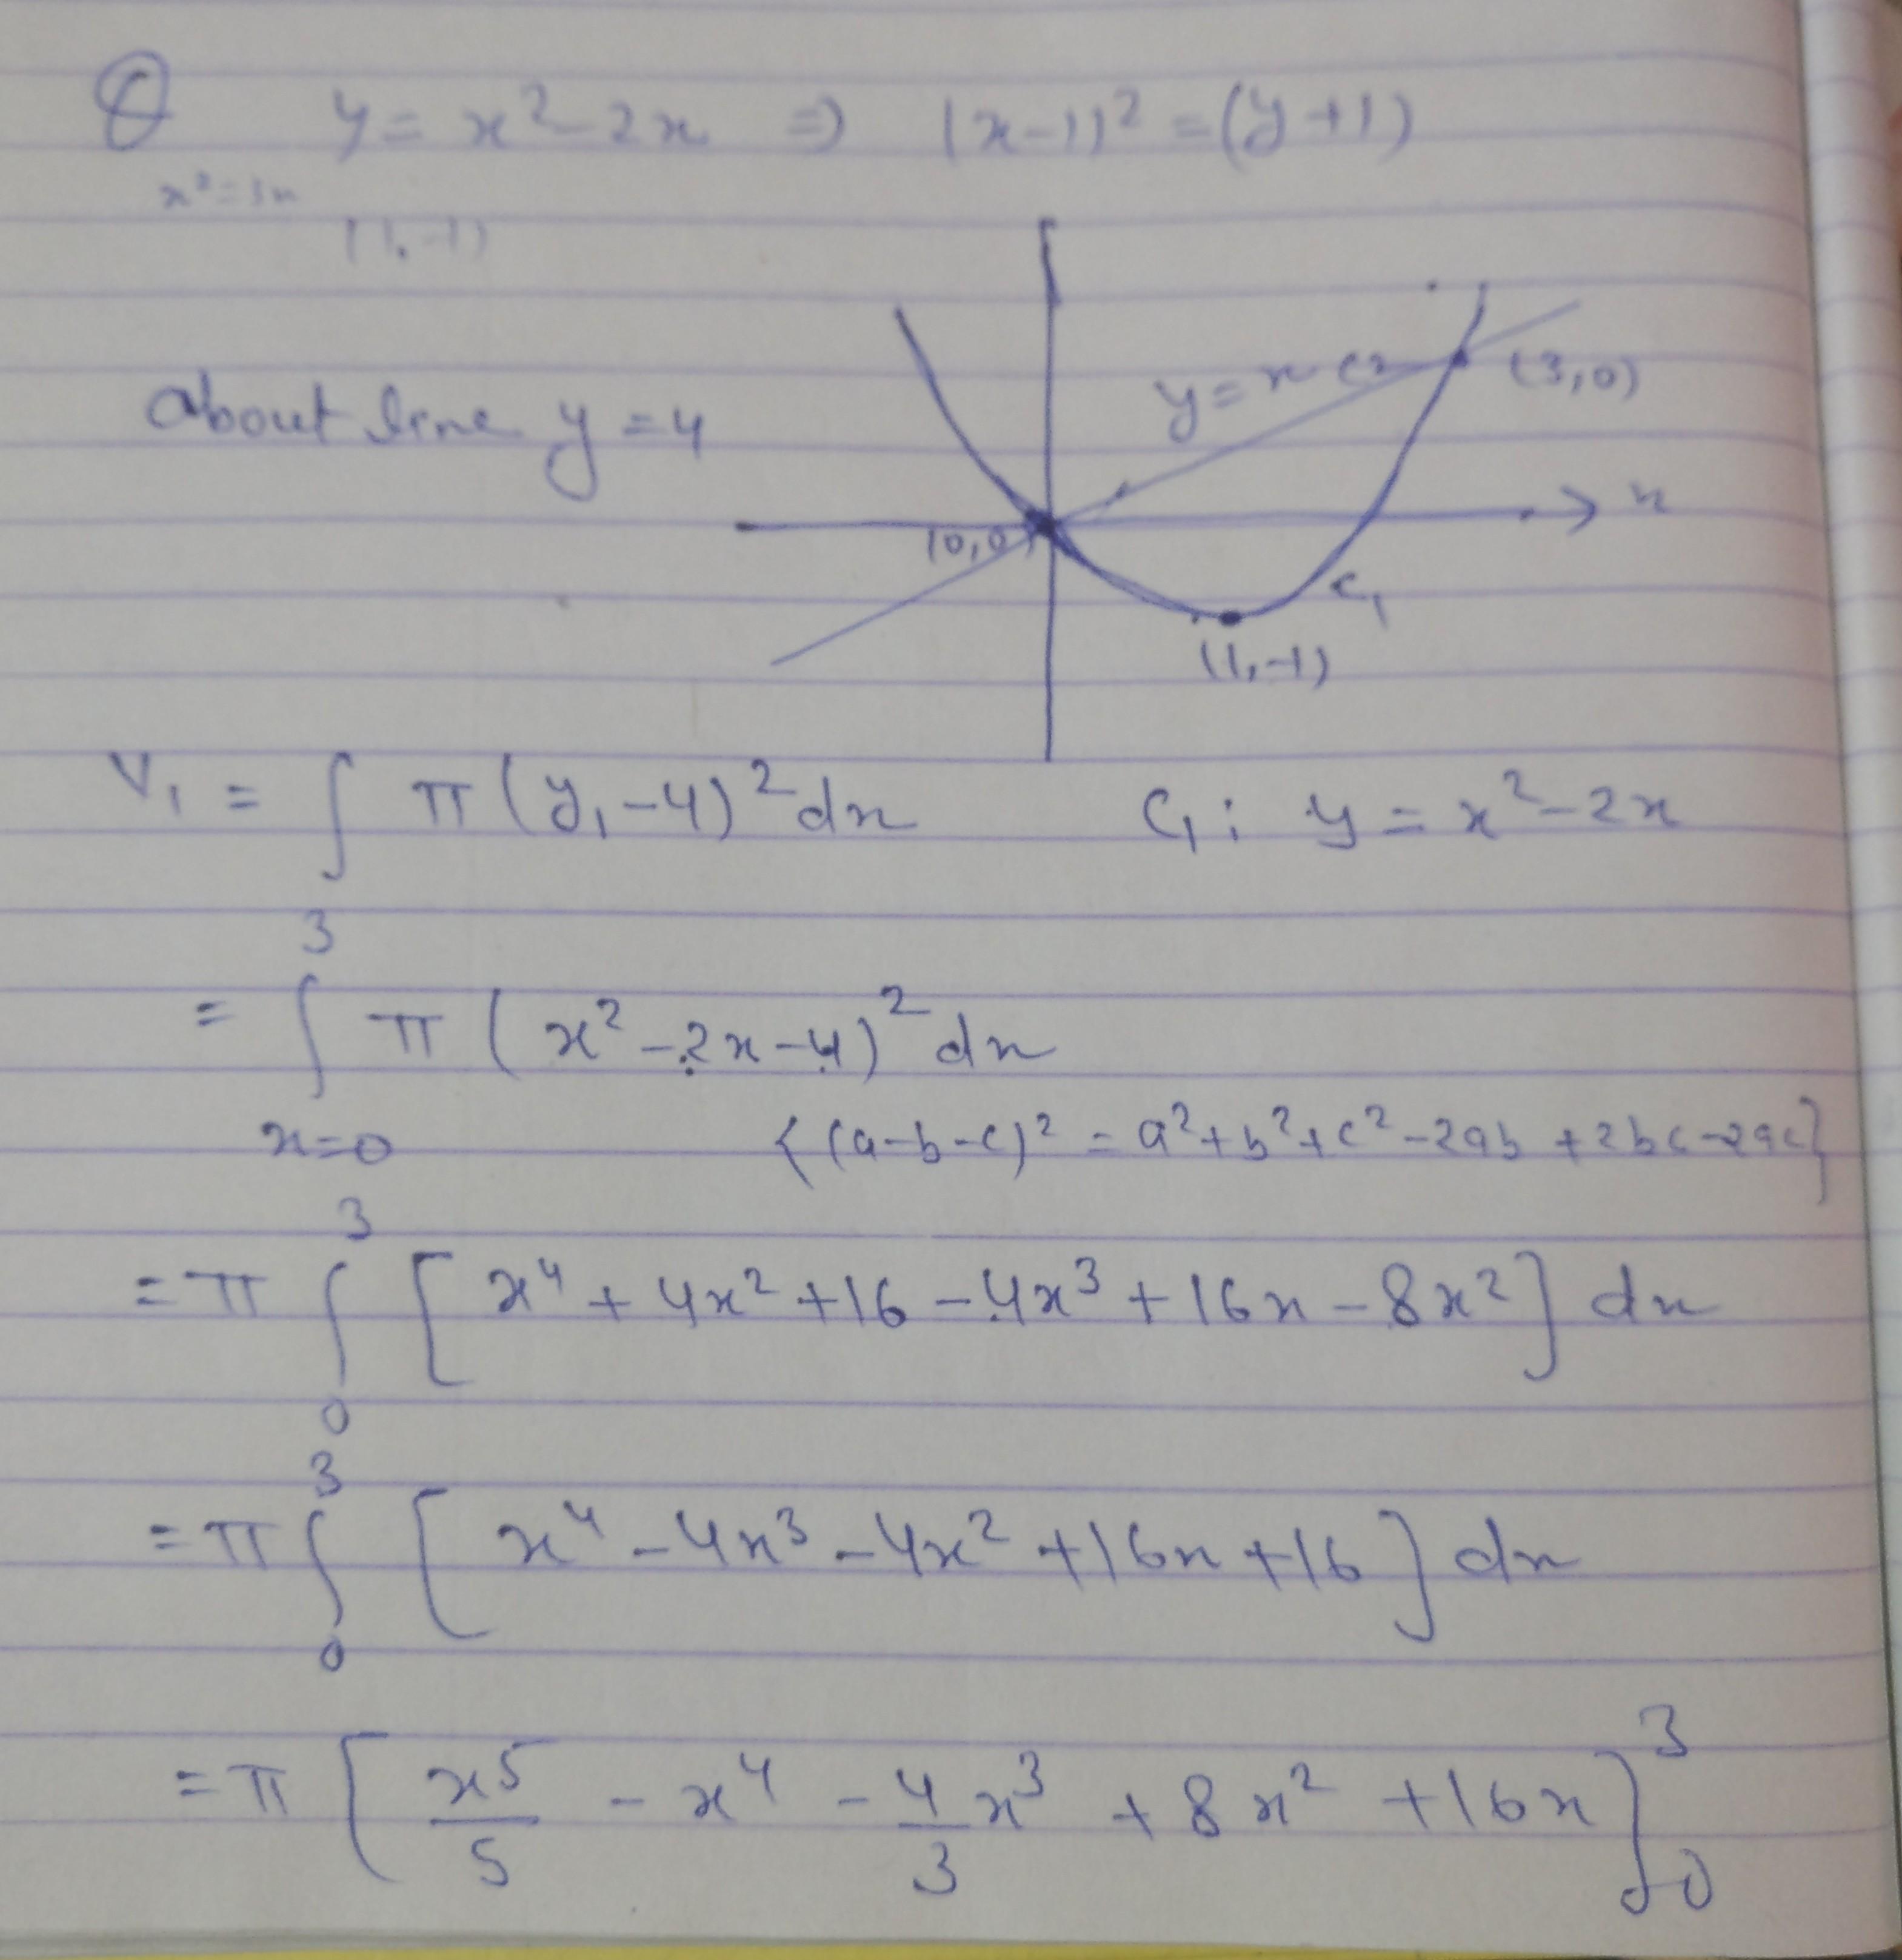 Q y = x² - 2x ⇒ (x-1)² = (y+1)
x² = 3x
(1,-1)
y = x C2 (3,0)
About line y = 4
x
(0,0)
C₁
(1,-1)
V₁ = ∫ π (y₁-4)² dx C₁ : y = x² - 2x
3
= ∫ π (x² - 2x - 4)² dx
x=0 {(a-b-c)² = a²+b²+c²-2ab+2bc-2ac}
3
= π ∫ [x⁴ + 4x² + 16 - 4x³ + 16x - 8x²] dx
0
3
= π ∫ [x⁴ - 4x³ - 4x² + 16x + 16] dx
0
= π [x⁵/5 - x⁴ - 4/3 x³ + 8x² + 16x]₀³